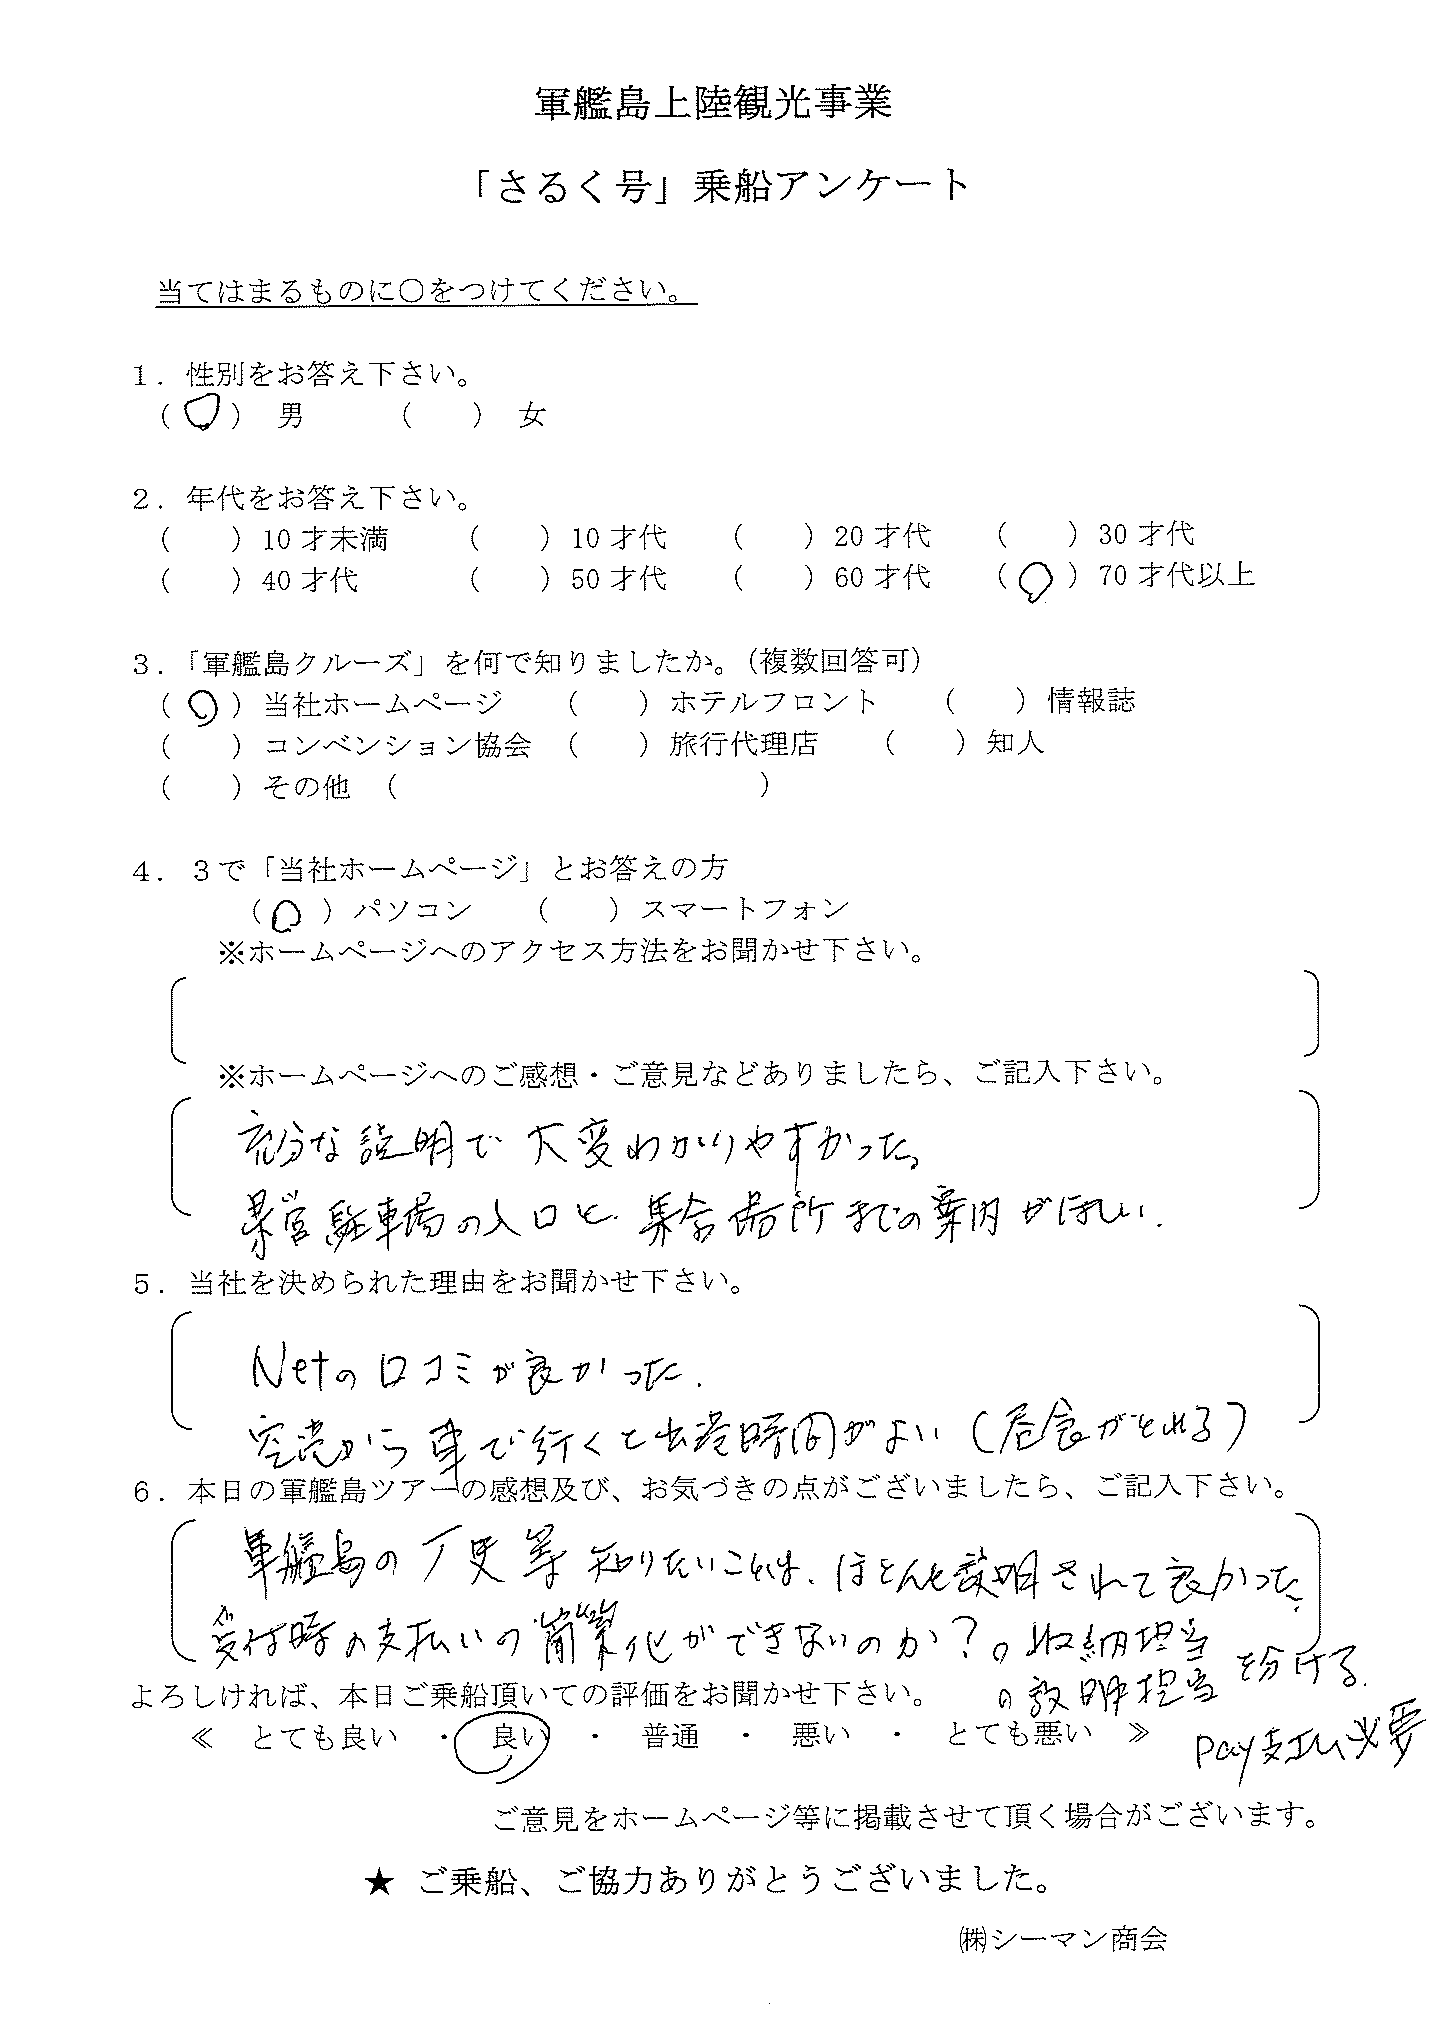 軍艦島上陸観光事業
「さるく号」乗船アンケート
当てはまるものに○をつけてください。
1．性別をお答え下さい。
（○）男　（　）女
2．年代をお答え下さい。
（　）10才未満　（　）10才代　（　）20才代　（　）30才代
（　）40才代　（　）50才代　（　）60才代　（○）70才代以上
3．「軍艦島クルーズ」を何で知りましたか。（複数回答可）
（○）当社ホームページ　（　）ホテルフロント　（　）情報誌
（　）コンベンション協会　（　）旅行代理店　（　）知人
（　）その他　（　　　　）
4．3で「当社ホームページ」とお答えの方
（○）パソコン　（　）スマートフォン
※ホームページへのアクセス方法をお聞かせ下さい。
※ホームページへのご感想・ご意見などありましたら、ご記入下さい。
充分な説明で大変わかりやすかった。
県営駐車場の入口と集合場所までの案内がほしい.
5．当社を決められた理由をお聞かせ下さい。
Netの口コミが良かった.
空港から車で行くと出港時間がよい（昼食がとれる）
6．本日の軍艦島ツアーの感想及び、お気づきの点がございましたら、ご記入下さい。
軍艦島の厂史等知りたいことは、ほとんど説明されて良かった.
受付時の支払いの簡素化ができないのか？。収納担当
。説明担当 を分ける.
よろしければ、本日ご乗船頂いての評価をお聞かせ下さい。
≪　とても良い　・　良い　・　普通　・　悪い　・　とても悪い　≫
pay支払い必要
ご意見をホームページ等に掲載させて頂く場合がございます。
★ ご乗船、ご協力ありがとうございました。
㈱シーマン商会